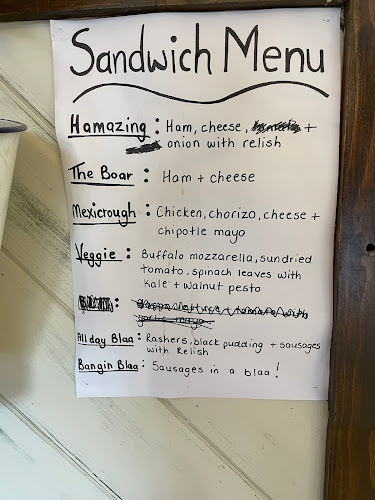 Sandwich Menu
Hamazing : Ham, cheese, +
onion with relish
The Boar : Ham + cheese
Mexicrough : Chicken, chorizo, cheese +
chipotle mayo
Veggie : Buffalo mozzarella, sundried
tomato, spinach leaves with
kale + walnut pesto
All day Blaa : Rashers, black pudding + sausages
with Relish
Bangin Blaa : Sausages in a blaa!